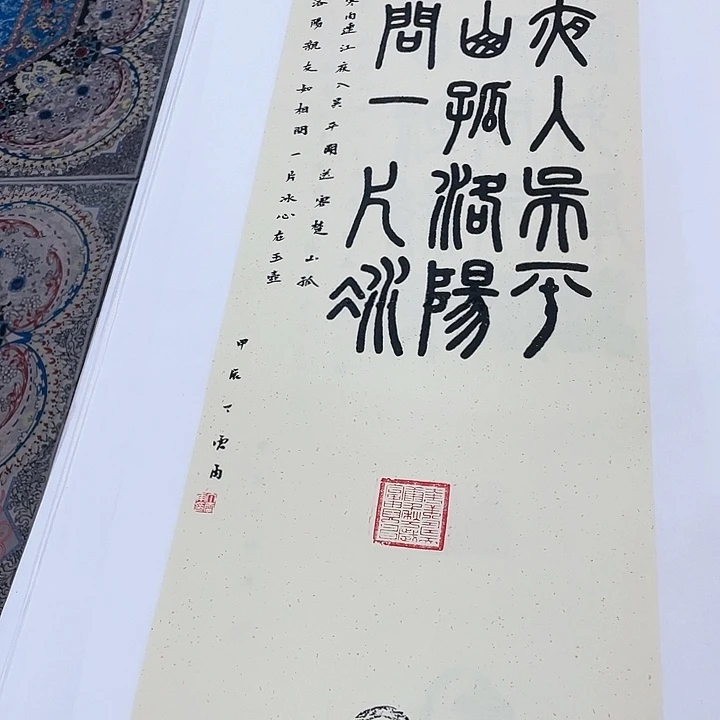 夜入吴平
山孤洛陽
問一片冰
寒雨連江夜入吴平明送客楚山孤
洛陽親友如相問一片冰心在玉壺
甲辰丁